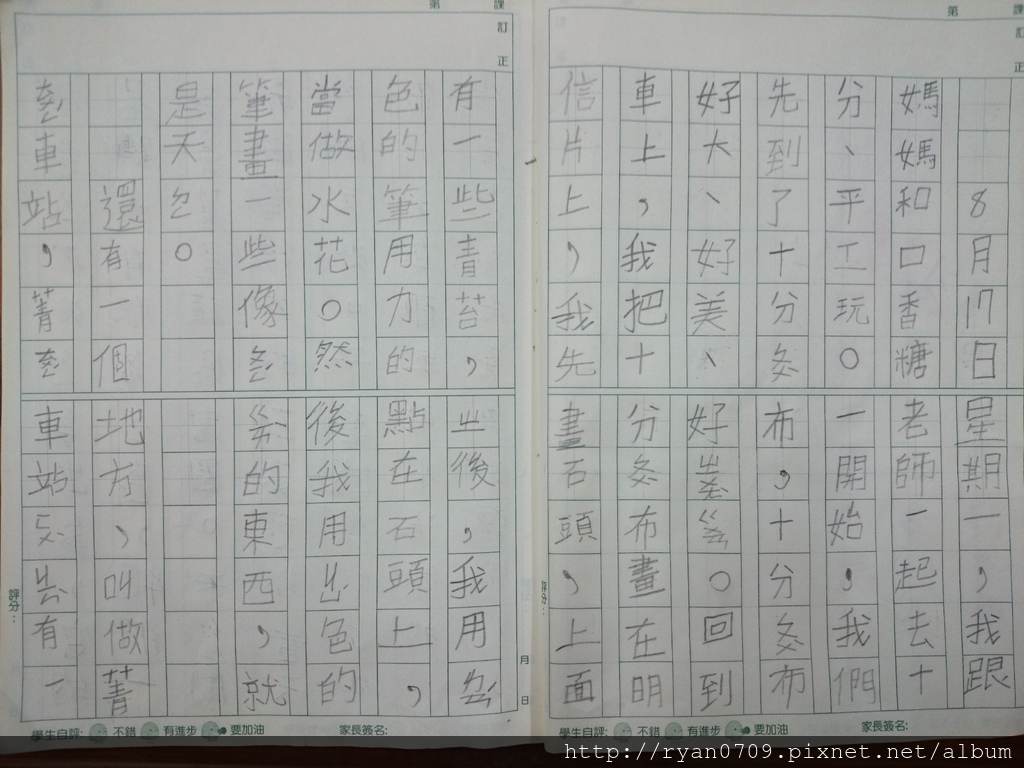 8月17日星期一，我跟
媽媽和口香糖老師一起去十
分、平工玩。一開始，我們
先到了十分布，十分布
好大、好美、好。回到
車上，我把十分布畫在明
信片上，我先畫石頭，上面
有一些青苔，ㄓ後，我用
色的筆用力的點在石頭上，
當做水花。然後我用色的
筆畫一些像的東西，就
是天。
還有一個地方、叫做菁
車站，菁車站有一
第 課
訂正
評分：
月 日
學生自評： 不錯 有進步 要加油 家長簽名：
第 課
訂正
評分：
學生自評： 不錯 有進步 要加油 家長簽名：
http://ryan0709.pixnet.net/album